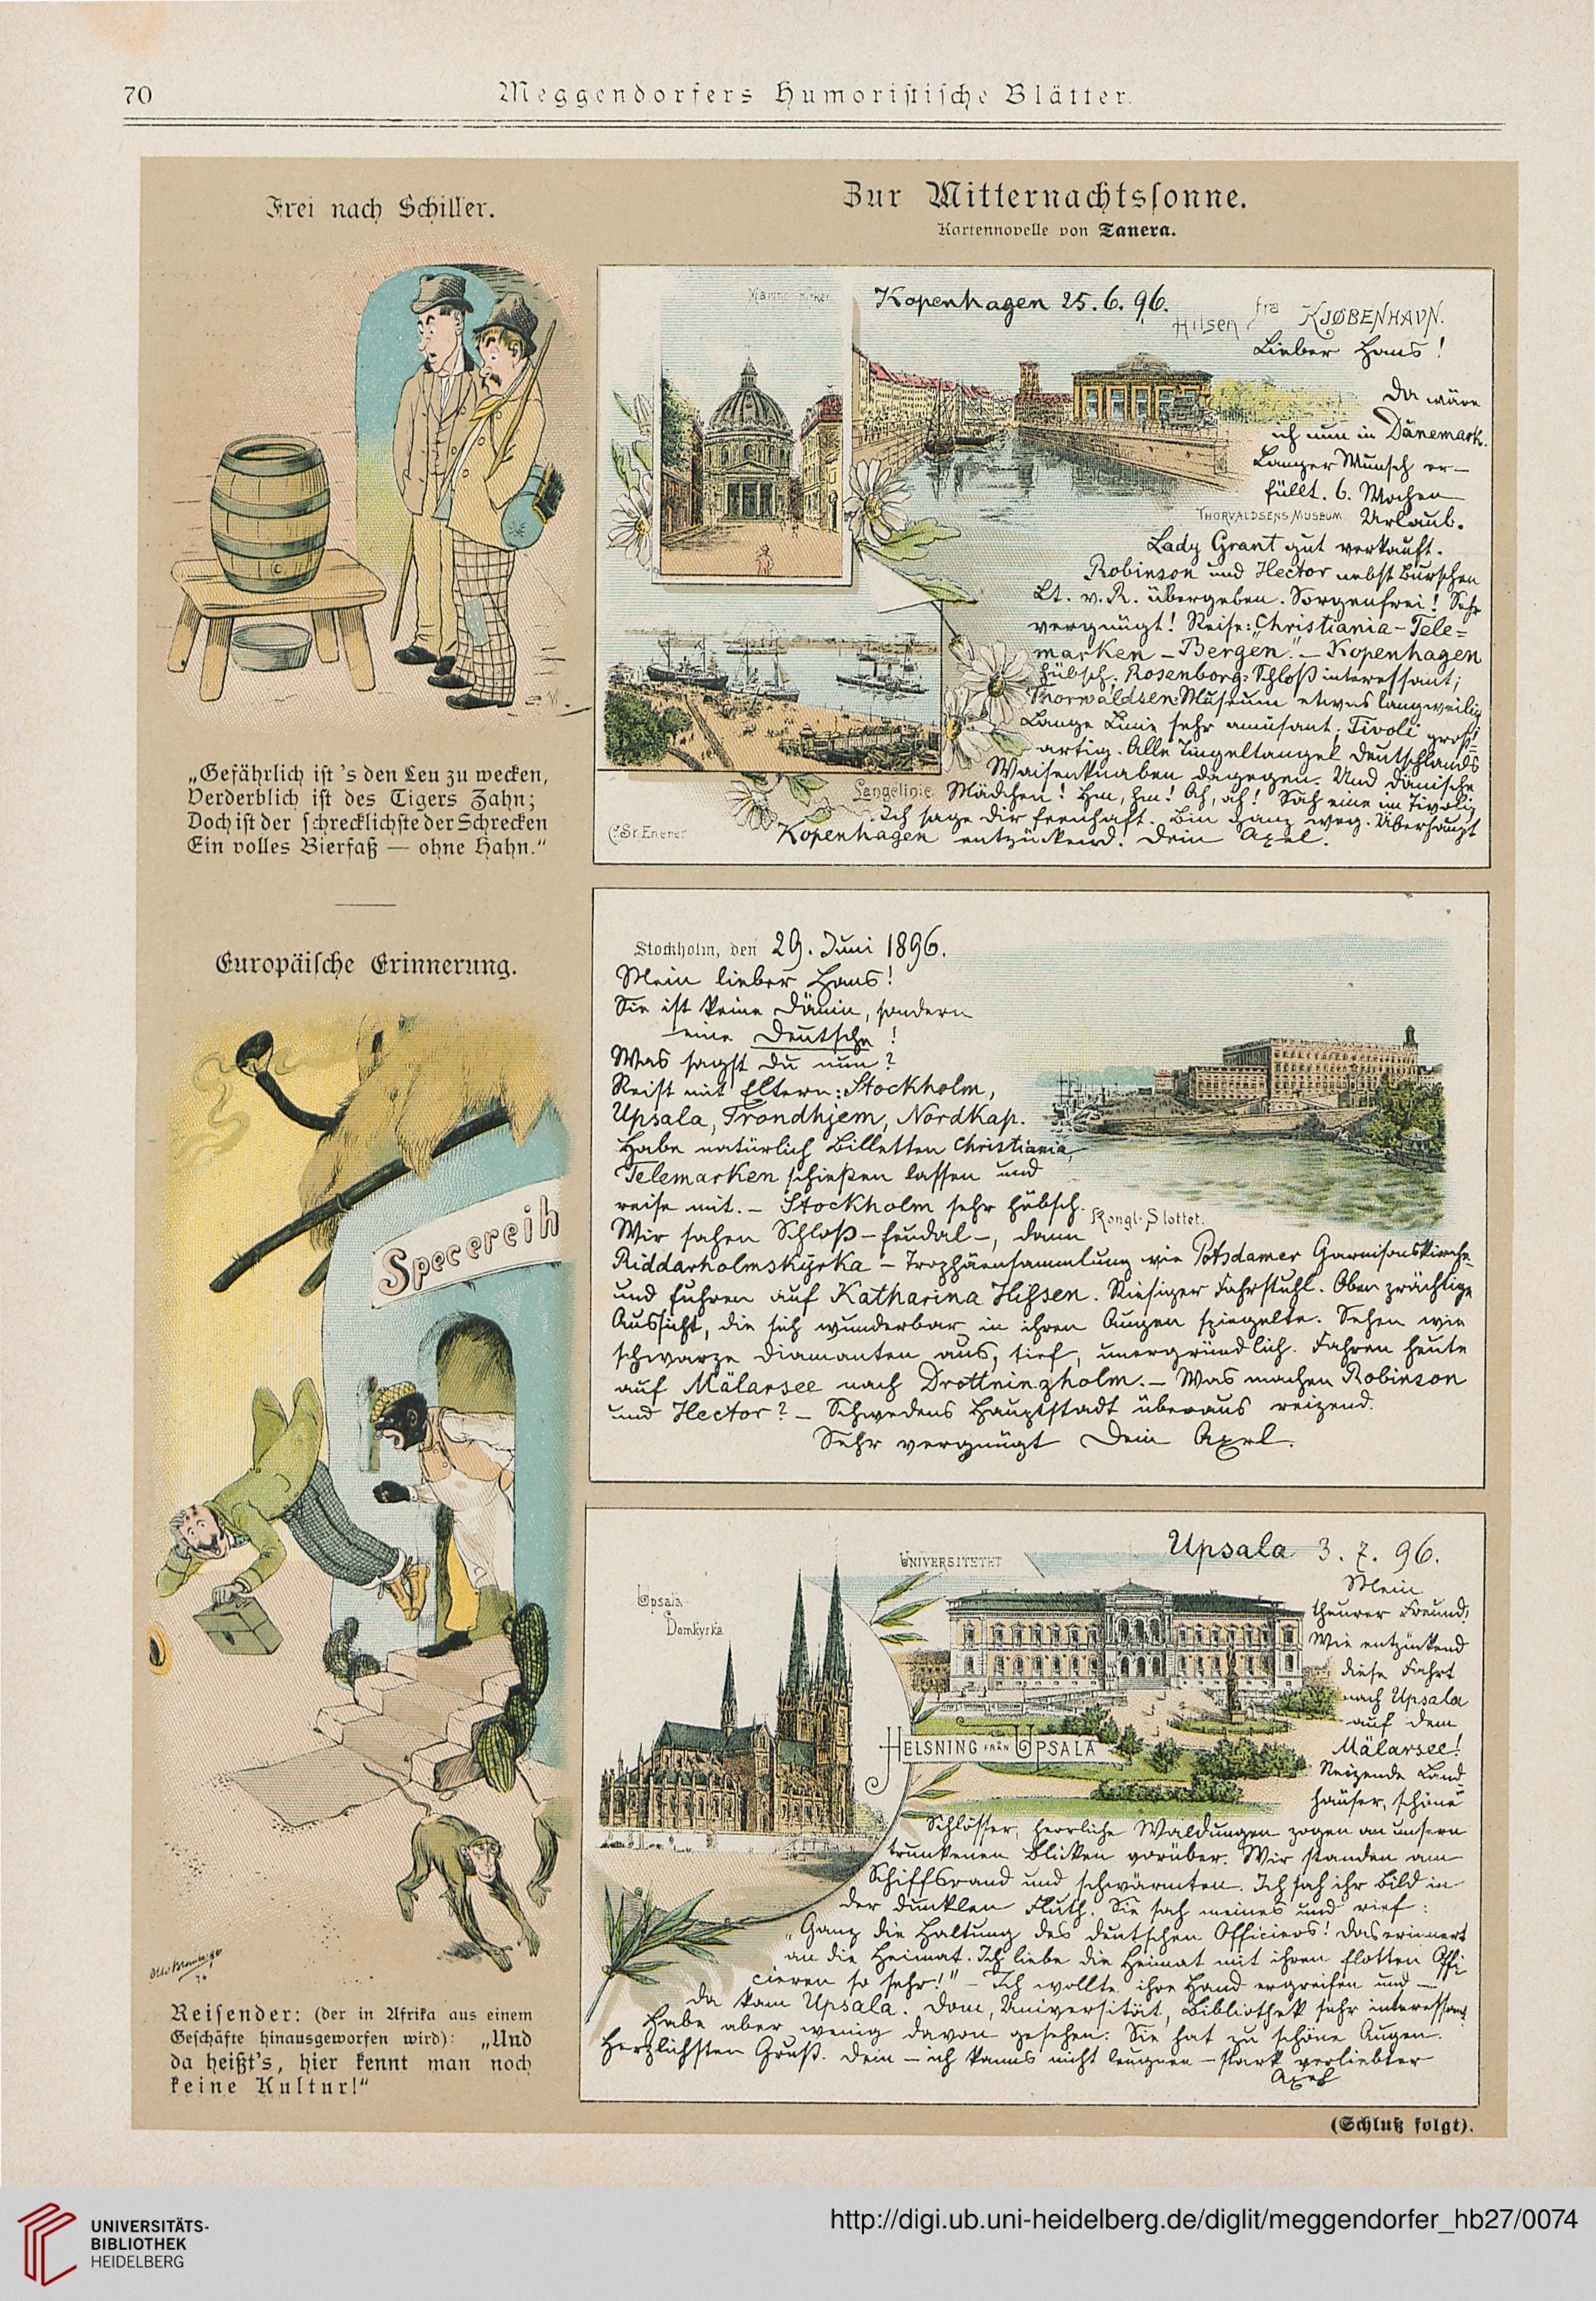 70
Meggendorfers Humoristische Blätter.
Frei nach Schiller.
„Gefährlich ist 's den Leu zu wecken,
Verderblich ist des Tigers Zahn;
Doch ist der schrecklichste der Schrecken
Ein volles Bierfaß — ohne Hahn."
Europäische Erinnerung.
Specereih
Reisender: (der in Afrika aus einem
Geschäfte hinausgeworfen wird): „Und
da heißt's, hier kennt man noch
keine Kultur!"
Zur Mitternachtssonne.
Kartennovelle von Tanera.
Kopenhagen 25. 6. 96.
Hilsen fra KJØBENHAVN.
Lieber Hans!
Da wäre
ich nun in Dänemark.
Langer Wunsch er-
füllt. 6. Wochen
THORVALDSENS MUSEUM
Urlaub.
Lady Grant gut verkauft.
Robinson und Hector nebst Burschen
Lt. v. R. übergeben. Sorgenfrei! Sehr
vergnügt! Reise: Christiania - Tele-
marken - Bergen. - Kopenhagen
hübsch. Rosenborg-Schloß interessant;
Thorwaldsen-Museum etwas langweilig
Lange Linie sehr amüsant; Tivoli groß-
artig. Alle Tingeltangel Deutschlands
Waisenknaben dagegen. Und dänische
Langelinie
Mädchen! Hm, hm! Ah, ah! Sah eine im Tivoli,
ich sage Dir feenhaft. Bin ganz weg. Überhaupt
Kopenhagen entzückend! Dein Axel.
Stockholm, den 29. Juni 1896.
Mein lieber Hans!
Sie ist keine Dänin, sondern
eine Deutsche!
Was sagst du nun?
Reist mit Eltern: Stockholm,
Upsala, Trondhjem, Nordkap.
Habe natürlich Billetten Christiania,
Telemarken schießen lassen und
reise mit. - Stockholm sehr hübsch.
Kongl. Slottet.
Wir sahen Schloß - feudal -, dann
Riddarholmskyrka - Trophäensammlung wie Potsdamer Garnisonskirche
und fuhren auf Katharina Hissen. Riesiger Fahrstuhl. Oben prächtige
Aussicht, die sich wunderbar in ihren Augen spiegelte. Sehen wie
schwarze Diamanten aus, tief, unergründlich. Fahren heute
auf Mälarsee nach Drottningholm. - Was machen Robinson
und Hector? - Schwedens Hauptstadt überaus reizend.
Sehr vergnügt Dein Axel.
Upsala 3. 7. 96.
UNIVERSITETET
Upsala
Domkyrka
HELSNING FRÅN UPSALA
Mein
theurer Freund!
Wie entzückend
diese Fahrt
nach Upsala
auf dem
Mälarsee!
Reizende Land-
häuser, schöne
Schlösser, herrliche Waldungen zogen an unsern
trunkenen Blicken vorüber. Wir standen am
Schiffsrand und schwärmten. Ich sah ihr Bild in
der dunklen Fluth. Sie sah meines und rief:
„Ganz die Haltung des deutschen Officiers! Das erinnert
an die Heimat. Ich liebe die Heimat mit ihren flotten Offi-
cieren so sehr!" - Ich wollte ihre Hand ergreifen und -
da kam Upsala. Dom, Universität, Bibliothek sehr interessant
Habe aber wenig davon gesehen. Sie hat zu schöne Augen.
Herzlichsten Gruß. Dein - ich kanns nicht leugnen - stark verliebter
Axel
(Schluß folgt).
UNIVERSITÄTS-
BIBLIOTHEK
HEIDELBERG
http://digi.ub.uni-heidelberg.de/diglit/meggendorfer_hb27/0074